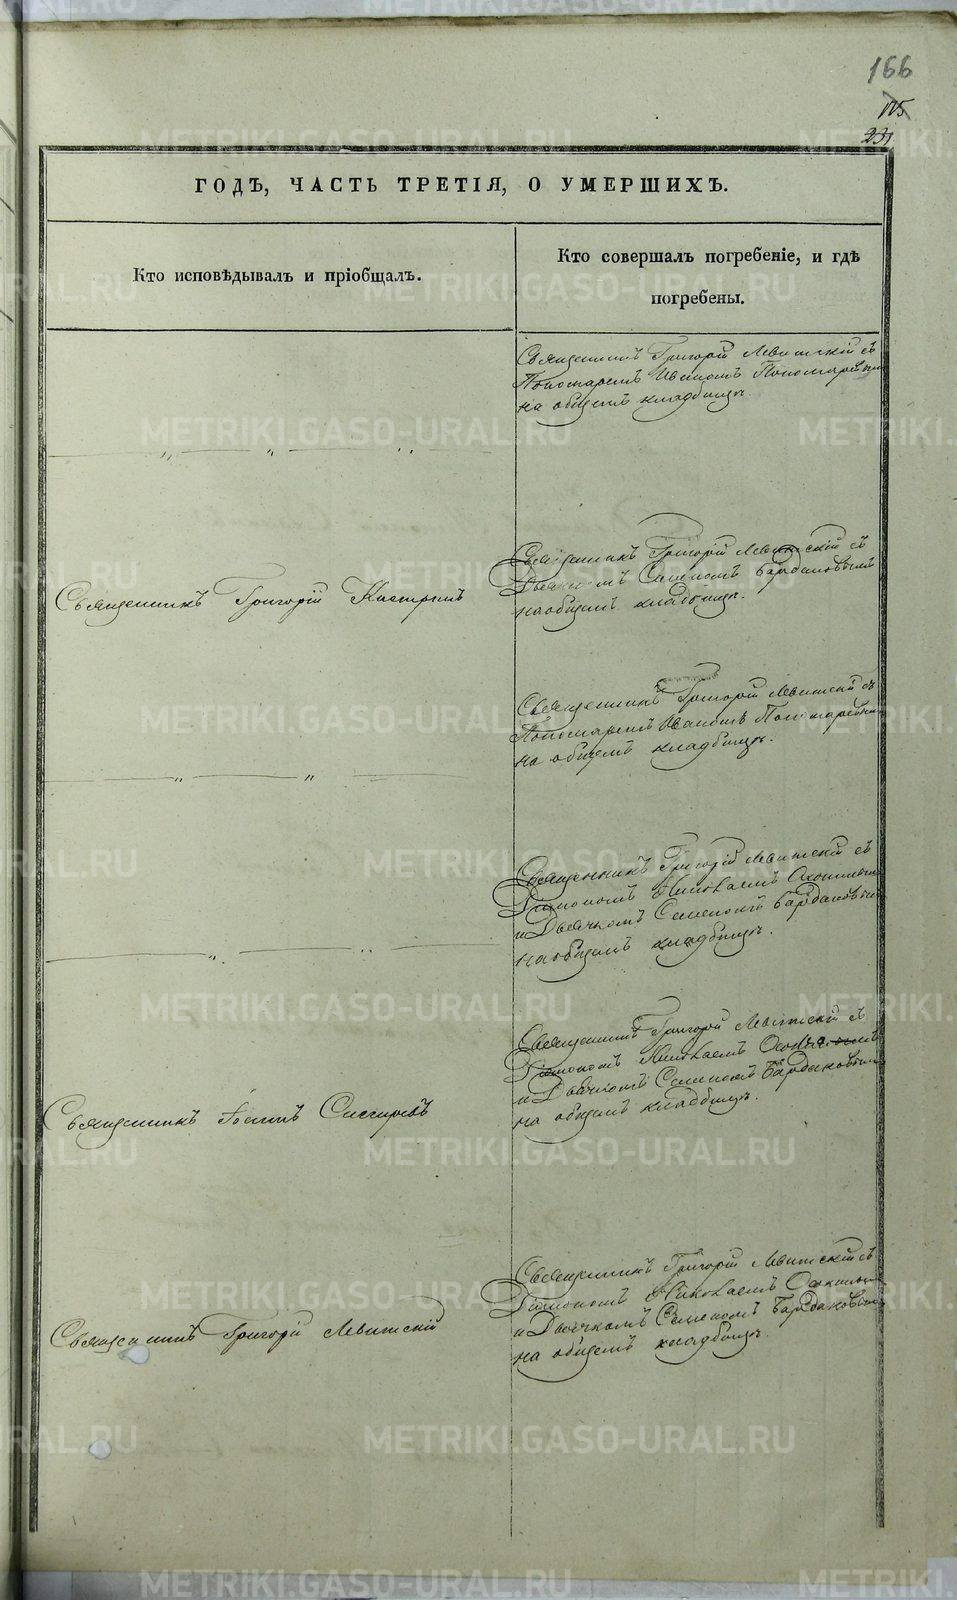 166
115
231
ГОДЪ, ЧАСТЬ ТРЕТІЯ, О УМЕРШИХЪ.
Кто исповѣдывалъ и пріобщалъ.
Кто совершалъ погребеніе, и гдѣ
погребены.
Священникъ Григорій Левитскій съ
Пономаремъ Иваномъ Пономаревым
на общемъ кладбищѣ
Священникъ Григорій
Священникъ Григорій Левитскій съ
Дьячкомъ Семеномъ Бардаковымъ
на общемъ кладбищѣ.
Священникъ Григорій Левитскій съ
Пономаремъ Иваномъ Пономаревым
на общемъ кладбищѣ.
Священникъ Григорій Левитскій съ
Діякономъ Николаемъ
и Дьячкомъ Семеномъ Бардаковым
на общемъ кладбищѣ.
Священникъ Іоаннъ
Священникъ Григорій Левитскій съ
Діякономъ Николаемъ
и Дьячкомъ Семеномъ Бардаковым
на общемъ кладбищѣ.
Священникъ Григорій Левитскій
Священникъ Григорій Левитскій съ
Діякономъ Николаемъ
и Дьячкомъ Семеномъ Бардаковым
на общемъ кладбищѣ.
METRIKI.GASO-URAL.RU